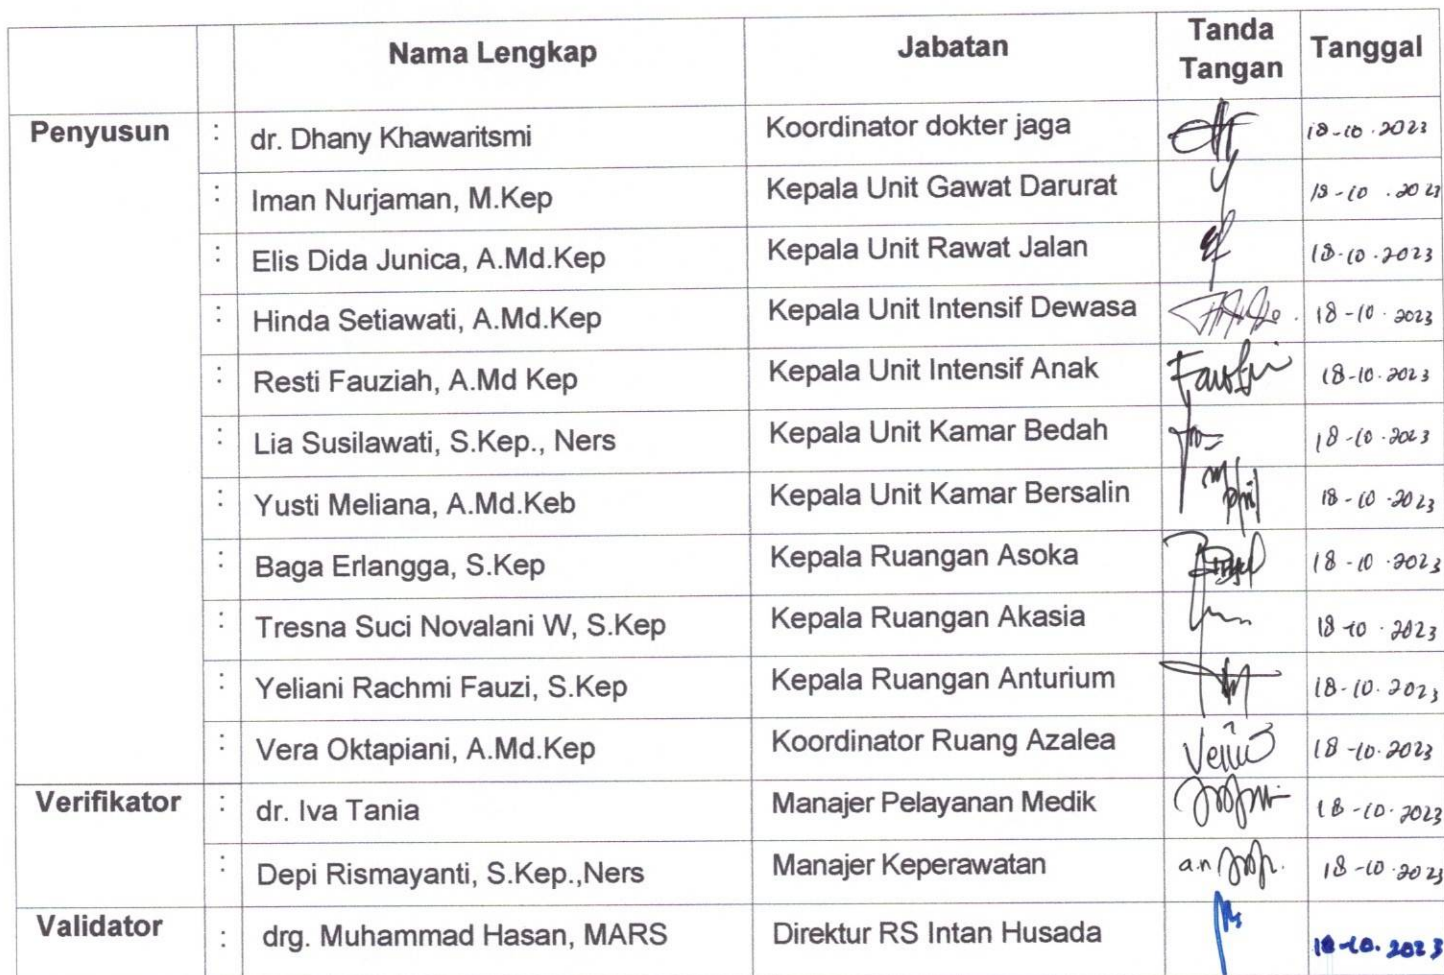 Nama Lengkap Jabatan Tanda Tangan Tanggal
Penyusun : dr. Dhany Khawaritsmi Koordinator dokter jaga 18-10-2023
: Iman Nurjaman, M.Kep Kepala Unit Gawat Darurat 18-10-2023
: Elis Dida Junica, A.Md.Kep Kepala Unit Rawat Jalan 18-10-2023
: Hinda Setiawati, A.Md.Kep Kepala Unit Intensif Dewasa 18-10-2023
: Resti Fauziah, A.Md Kep Kepala Unit Intensif Anak 18-10-2023
: Lia Susilawati, S.Kep., Ners Kepala Unit Kamar Bedah 18-10-2023
: Yusti Meliana, A.Md.Keb Kepala Unit Kamar Bersalin 18-10-2023
: Baga Erlangga, S.Kep Kepala Ruangan Asoka 18-10-2023
: Tresna Suci Novalani W, S.Kep Kepala Ruangan Akasia 18-10-2023
: Yeliani Rachmi Fauzi, S.Kep Kepala Ruangan Anturium 18-10-2023
: Vera Oktapiani, A.Md.Kep Koordinator Ruang Azalea 18-10-2023
Verifikator : dr. Iva Tania Manajer Pelayanan Medik 18-10-2023
: Depi Rismayanti, S.Kep.,Ners Manajer Keperawatan a.n 18-10-2023
Validator : drg. Muhammad Hasan, MARS Direktur RS Intan Husada 18-10.2023